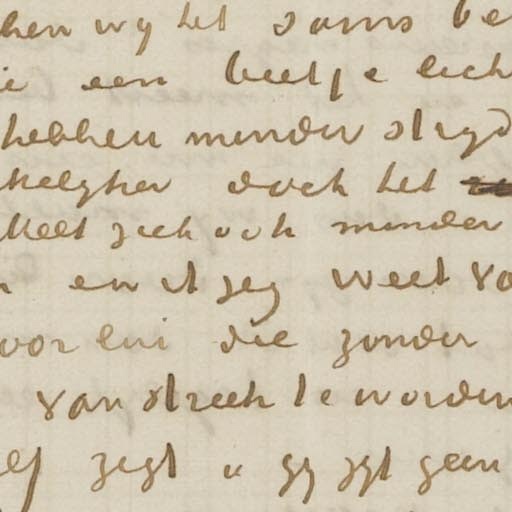 hen wy het soms be
ie een beetje lich
hebben minder stryd
doch het
zich ook minder
en ik zeg weet va
voor lui die zonder
van streek te worden
elf zegt u gy zyt geen